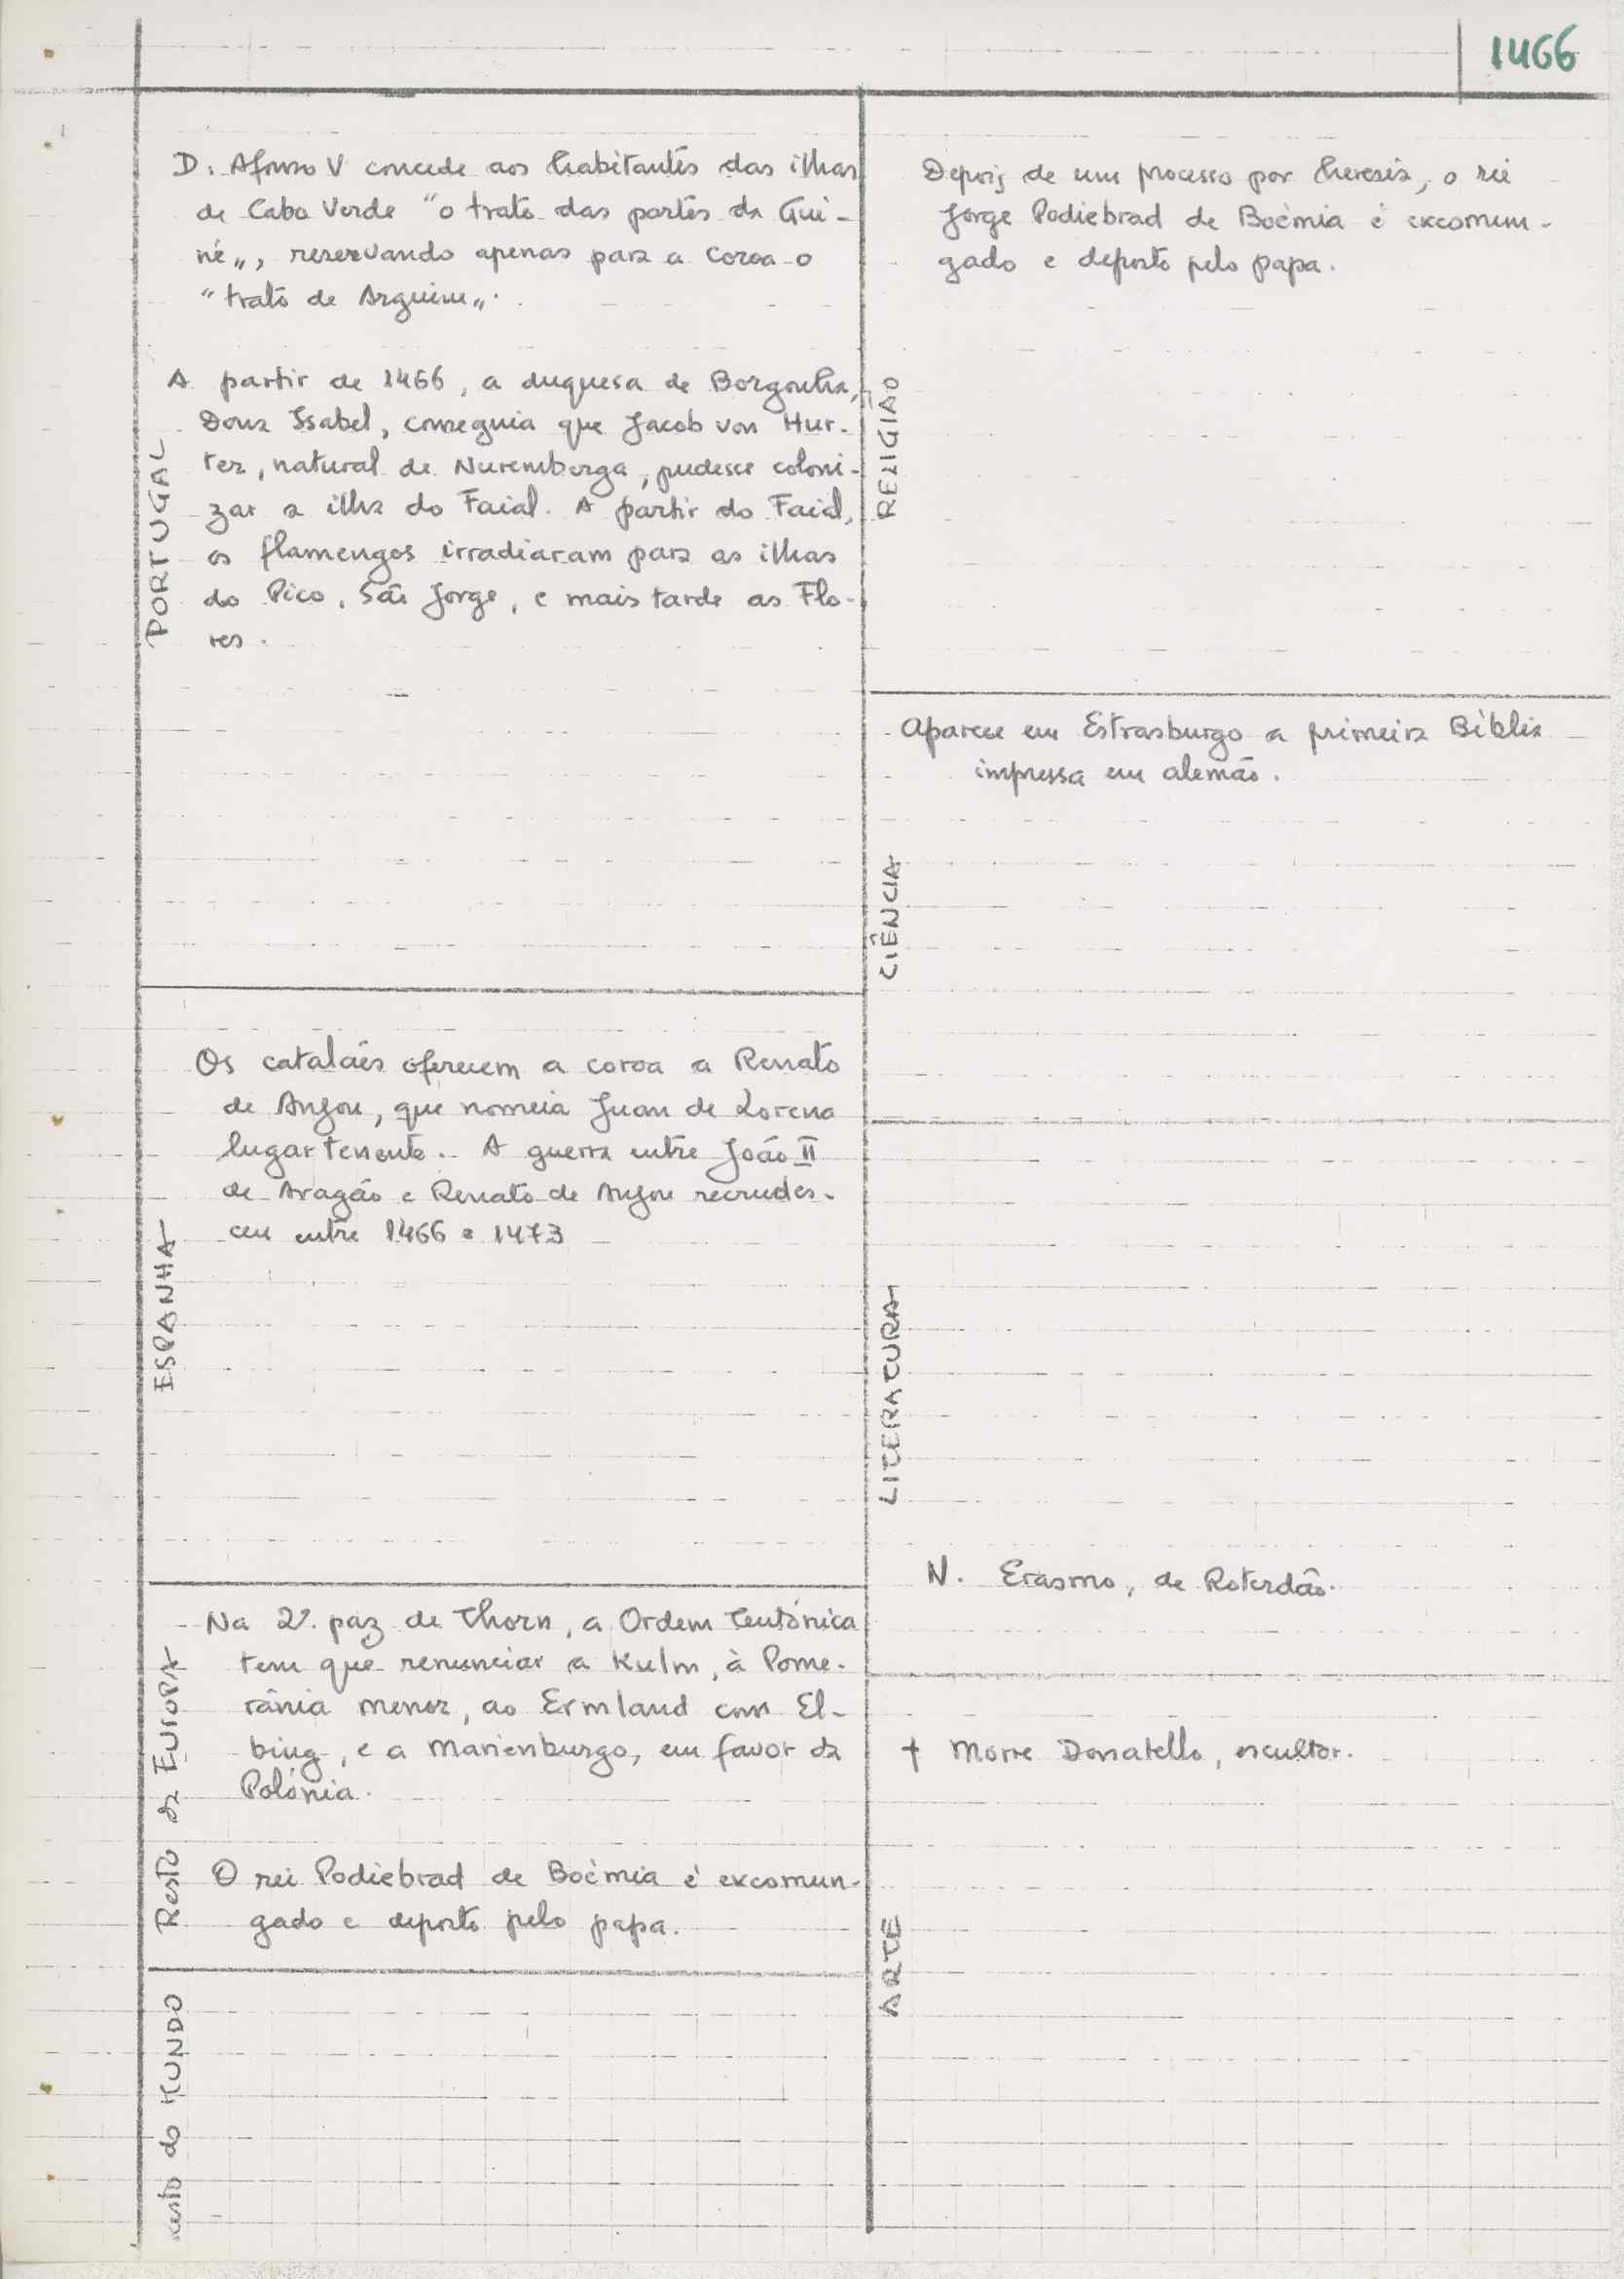 1466
PORTUGAL
D. Afonso V concede aos habitantes das ilhas
de Cabo Verde "o trato das partes da Gui-
né", reservando apenas para a coroa o
"trato de Arguim".
A partir de 1466, a duquesa de Borgonha,
Dona Isabel, conseguia que Jacob von Hur-
ter, natural de Nuremberga, pudesse coloni-
zar a ilha do Faial. A partir do Faial,
os flamengos irradiaram para as ilhas
do Pico, São Jorge, e mais tarde as Flo-
res.
ESPANHA
Os catalães oferecem a coroa a Renato
de Anjou, que nomeia Juan de Lorena
lugartenente. A guerra entre João II
de Aragão e Renato de Anjou recrudes-
ceu entre 1466 e 1473
Resto da EUROPA
Na 2ª. paz de Thorn, a Ordem Teutónica
tem que renunciar a Kulm, à Pome-
rânia menor, ao Ermland com El-
bing, e a Marienburgo, em favor da
Polónia.
O rei Podiebrad de Boémia é excomun-
gado e deposto pelo papa.
Resto do MUNDO
RELIGIÃO
Depois de um processo por heresia, o rei
Jorge Podiebrad de Boémia é excomun-
gado e deposto pelo papa.
CIÊNCIA
Aparece em Estrasburgo a primeira Bíblia
impressa em alemão.
LITERATURA
N. Erasmo, de Roterdão.
ARTE
† Morre Donatello, escultor.